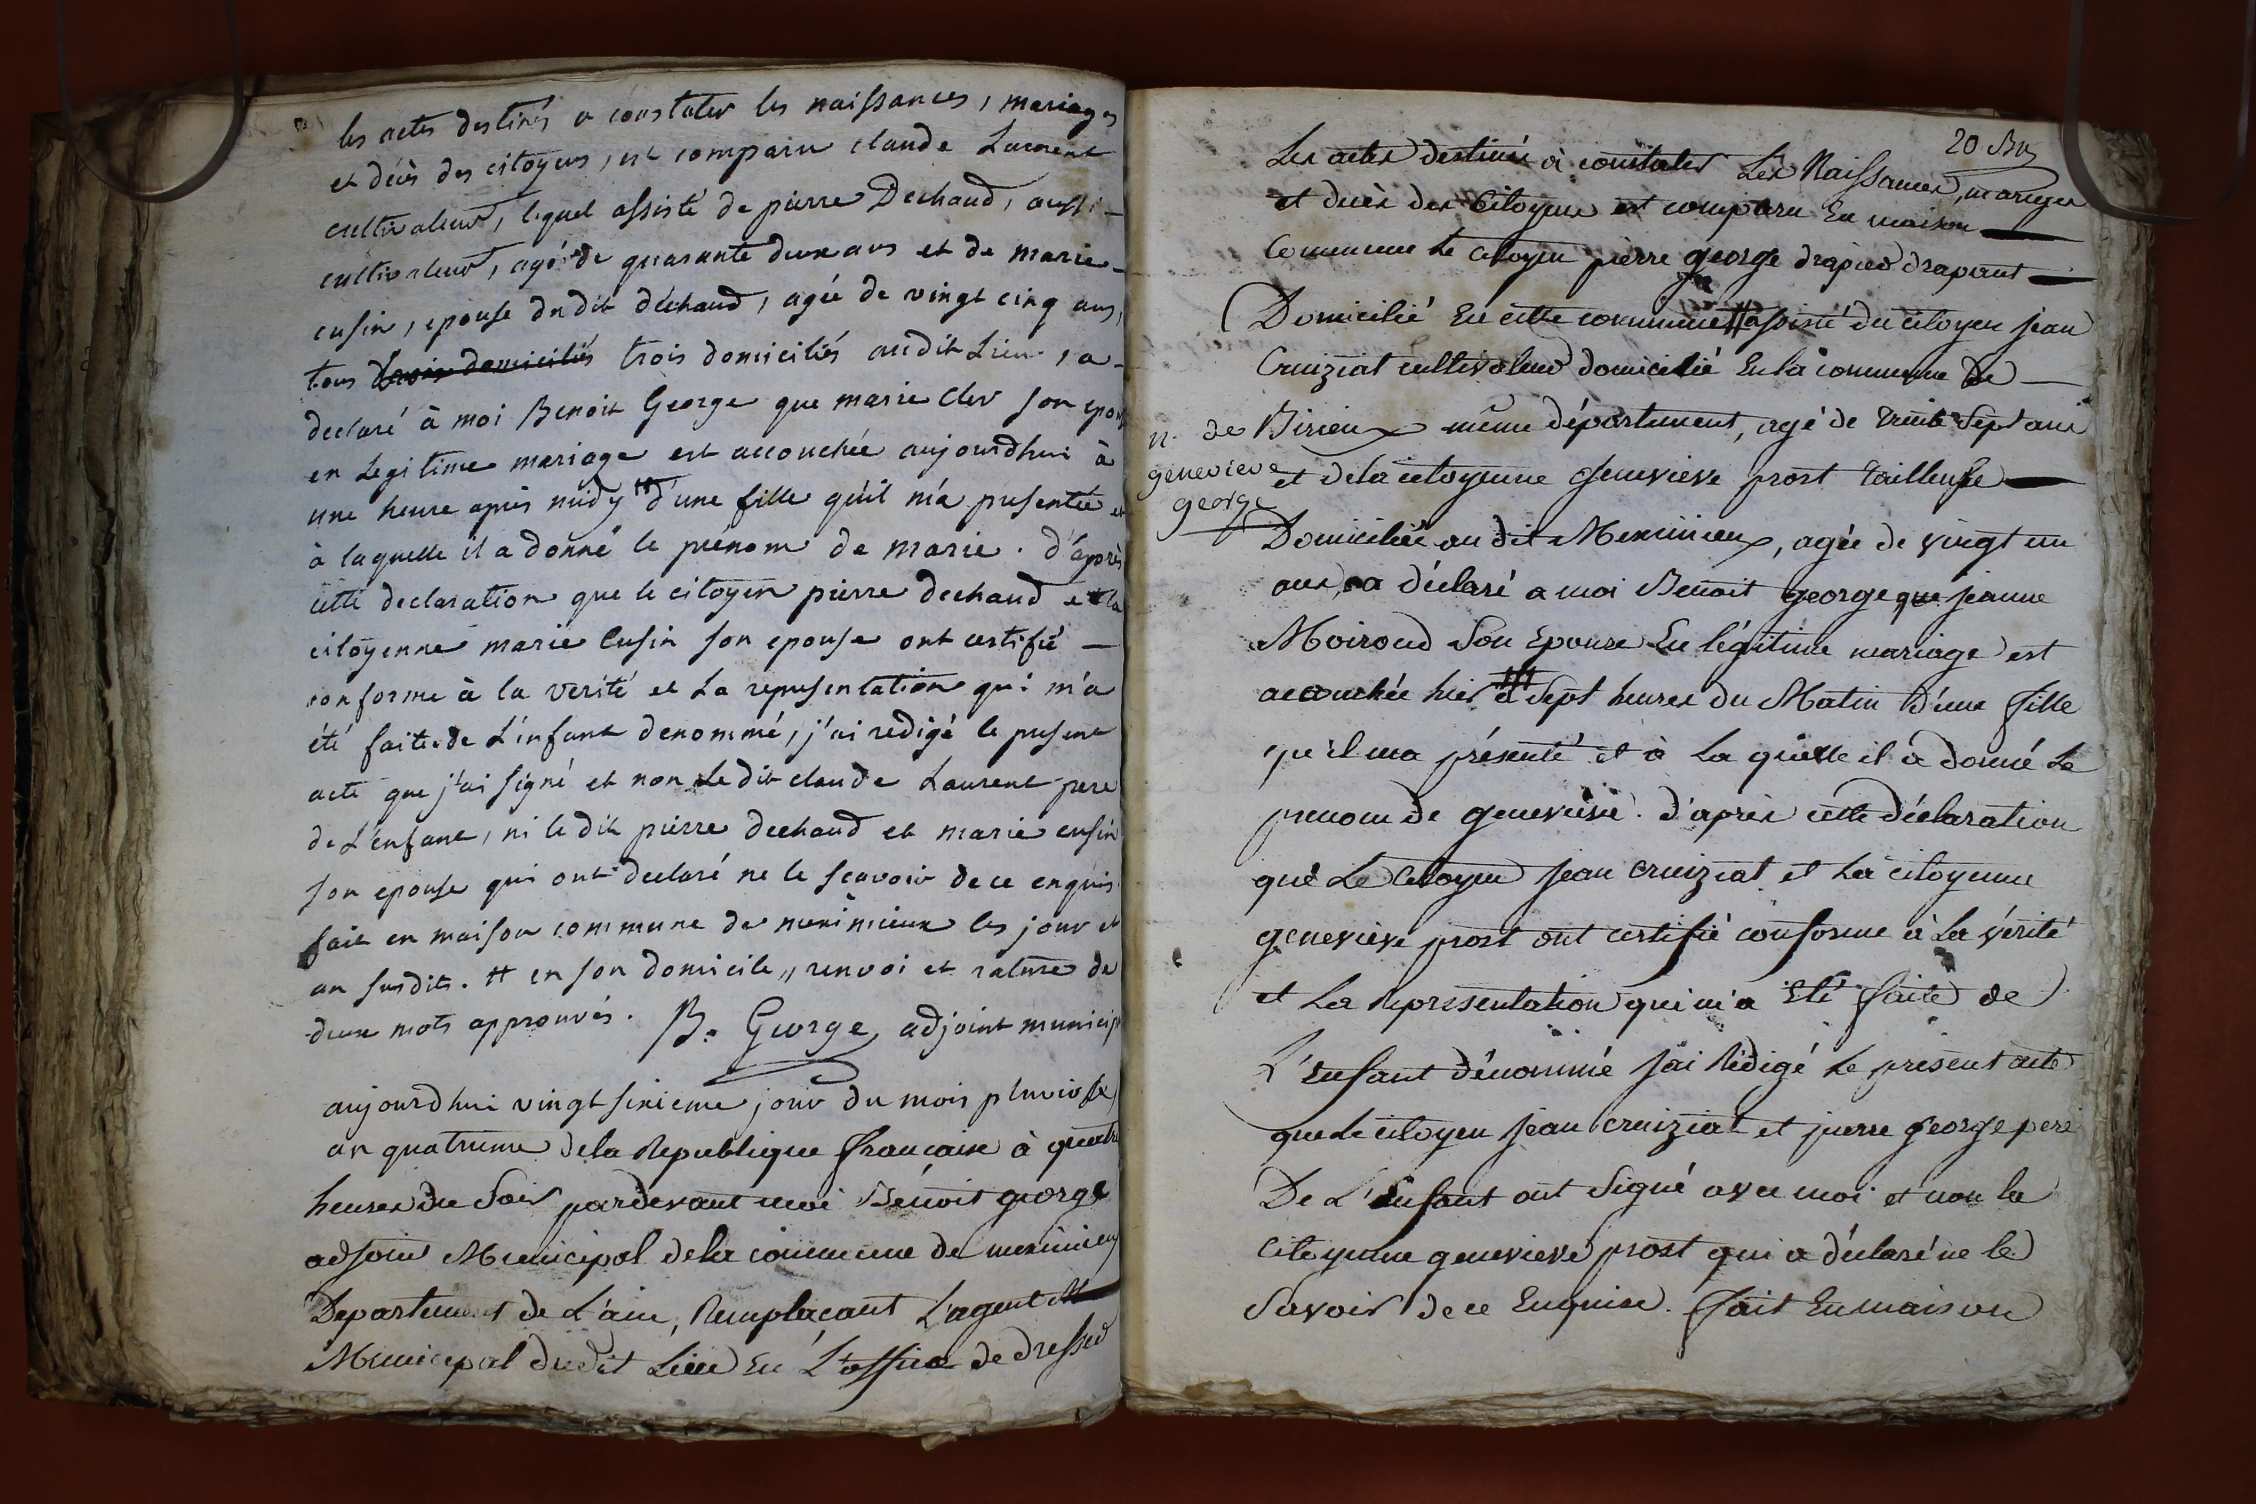 les actes destinés a constater les naissances, mariages
et décès des citoyens, est comparu claude Laurent
cultivateur, lequel assisté de pierre Dechaud, aussi
cultivateur, agé de quarante deux ans et de marie
cusin, epouse du dit dechaud, agée de vingt cinq ans,
tous trois domiciliés trois domiciliés audit Lieu, a
declaré à moi Benoit George que marie Cler son epouse
en Legitime mariage est accouchée aujourdhui à
une heure après midy # d'une fille qu'il m'a presentée et
à laquelle il a donné le prénom de marie. d'après
cette declaration que le citoyen pierre dechaud et la
citoyenne marie Cusin son epouse ont certifié
conforme à la verité et La representation qui m'a
été faite de L'enfant denommé, j'ai redigé le present
acte que j'ai signé et non Le dit claude Laurent pere
de L'enfant, ni le dit pierre dechaud et marie cusin
son epouse qui ont declaré ne le scavoir de ce enquis.
fait en maison commune de meximieux les jour et
an susdits. # en son domicile, renvoi et rature de
deux mots approuvés. B. George adjoint municip
aujourdhui vingt sixieme jour du mois pluviose
an quatrieme de la Republique francaise à quatre
heures du Soir pardevant moi Benoit george
adjoint Municipal de la commune de meximieux
Departement de L'ain, Remplacant L'agent
Municipal du dit Lieu En L'office de dresser
20
Les actes destinés à constater Les Naissances, mariages
et decès des Citoyens est comparu En maison
Commune Le Citoyen pierre george drapier drapant
Domicilié En cette commune # assisté du citoyen jean
Cruiziat cultivateur domicilié En la commune de
Birieux même département, agé de trente Sept ans
n. de
genevieve
george
et de la citoyenne Genevieve prost tailleuse
Domiciliée au dit Meximieux, agée de vingt un
ans, a déclaré a moi Benoit george, que jeanne
Moiroud Son Epouse En légitime mariage est
accouchée hier # à Sept heures du Matin d'une fille
qu'il ma présenté et à La quelle il a donné Le
prenom de genevieve. d'après cette déclaration
que Le Citoyen jean cruiziat et La citoyenne
genevieve prost ont certifié conforme à La vérité
et La Représentation qui m'a Eté faite de
L'Enfant dénommé jai Rédigé Le present acte
que Le citoyen jean cruiziat et pierre george pere
De L'Enfant ont Signé avec moi et non la
citoyenne genevieve prost qui a déclaré ne le
Savoir de ce Enquise. fait En maison